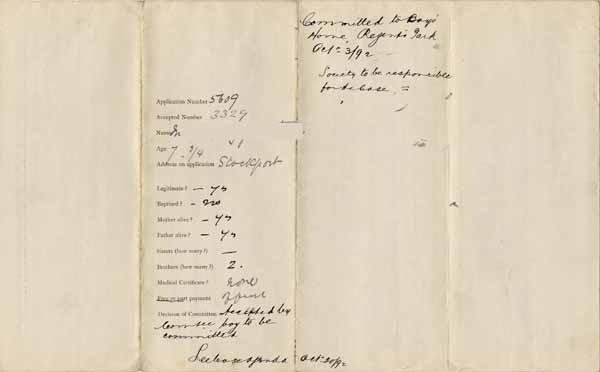 Application Number 5609
Accepted Number 3329
Name
Age 7 3/4
Address on application Stockport
Legitimate? – yes
Baptised? – no
Mother alive? – yes
Father alive? – yes
Sisters (how many?) —
Brothers (how many?) 2.
Medical Certificate? none
Free or part payment
Decision of Committee Accepted by
Com'tee boy to be
committed
Oct 20/92
Committed to Boys'
Home, Regent's Park
Oct 3/92
Society to be responsible
for the case. =